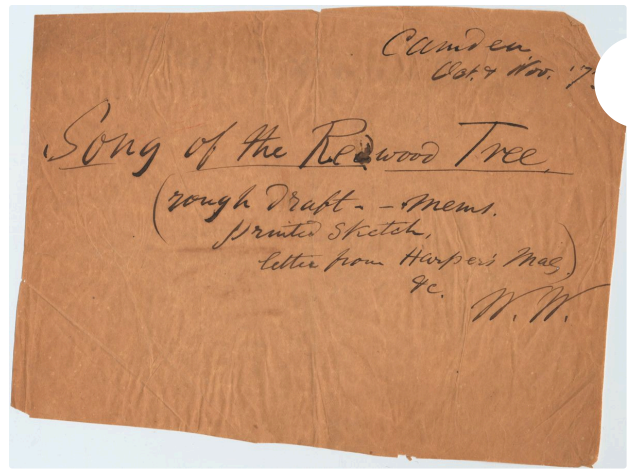 Camden
Oct. & Nov. '7
Song of the Redwood Tree.
(rough draft - - mems.
printed sketch,
letter from Harper's Mag.)
&c.
W. W.